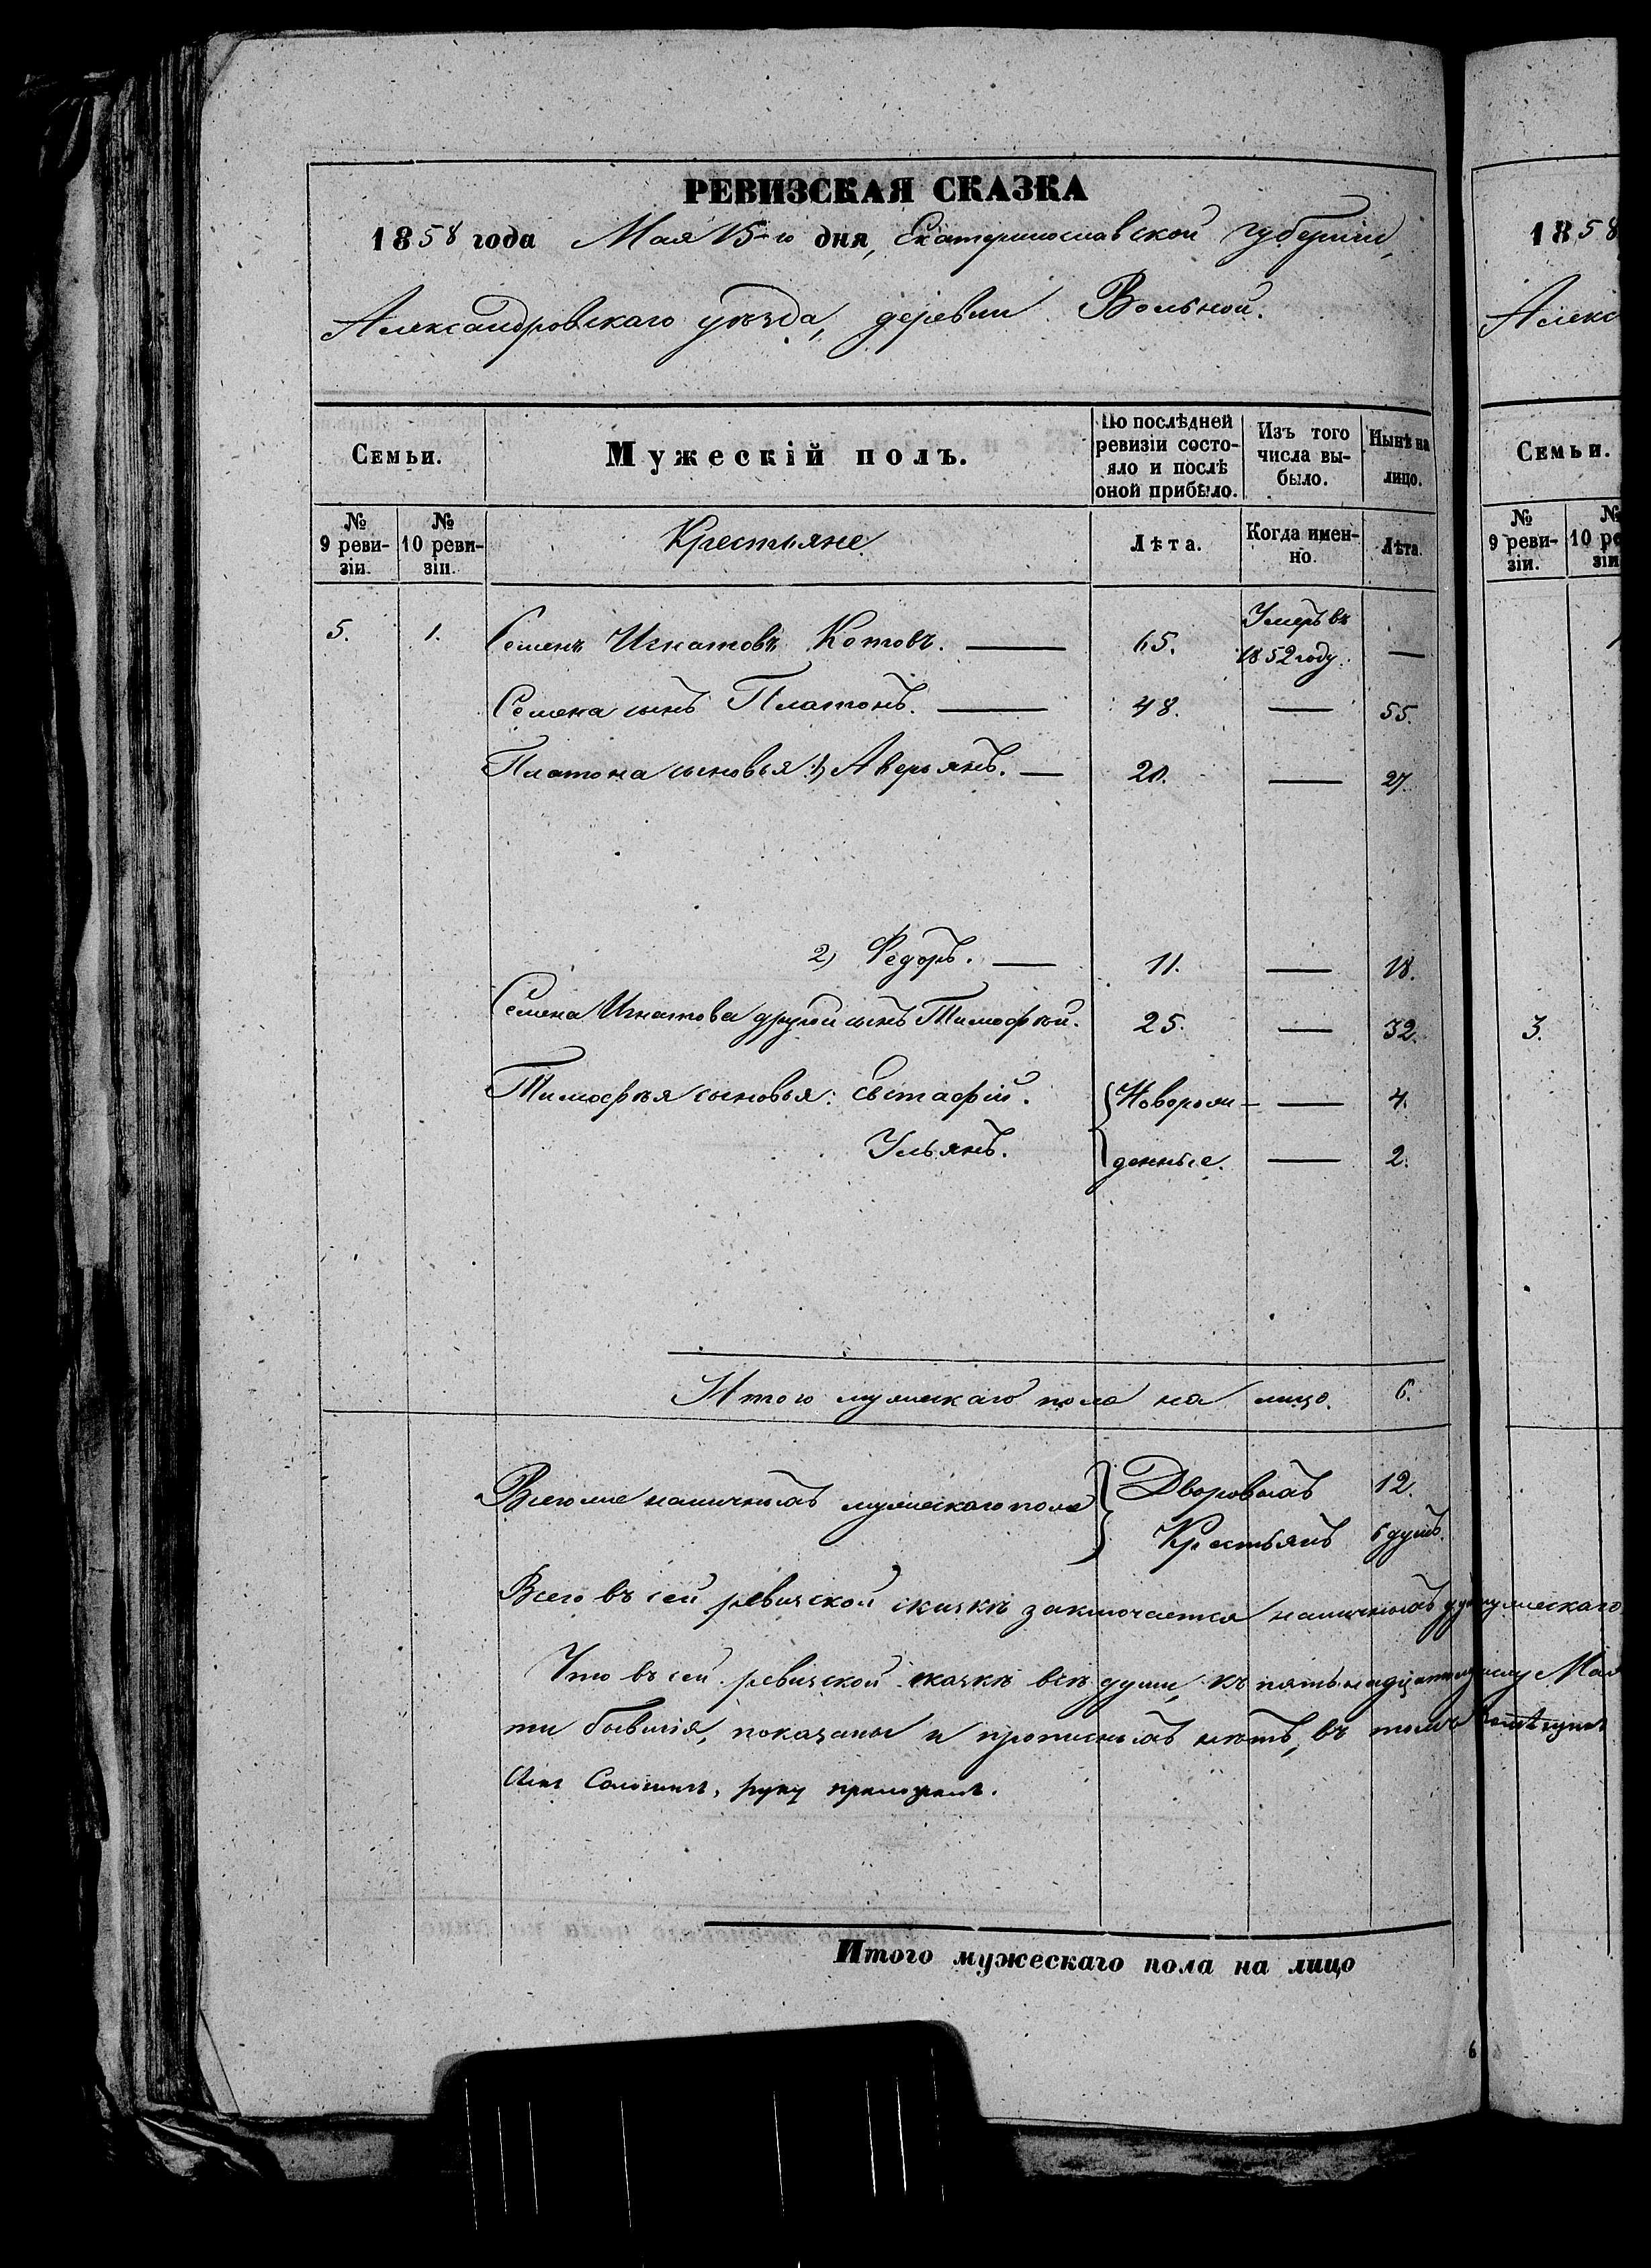 РЕВИЗСКАЯ СКАЗКА
1858 года Мая 15-го дня, Екатеринославской губернии,
Александровскаго уѣзда, деревни Вольной.
Семьи.
Мужескій полъ.
По послѣдней ревизіи состояло и послѣ оной прибыло.
Изъ того числа выбыло.
Нынѣ на лицо.
№ 9 ревизіи.
№ 10 ревизіи.
Крестьяне
Лѣта.
Когда именно.
Лѣта.
5. 1. Семенъ Игнатовъ Котовъ. — 65. Умеръ въ 1852 году. —
Семена сынъ Платонъ. — 48. — 55.
Платона сыновья: 1, Аверьянъ. — 20. — 27.
2, Федоръ. — 11. — 18.
Семена Игнатова другой сынъ Тимофѣй. 25. — 32.
Тимофѣя сыновья: Евстафій. Новорож- — 4.
Ульянъ. денные. — 2.
Итого мужескаго пола на лицо. 6.
Всего же наличныхъ мужескаго пола Дворовыхъ 12.
Крестьянъ 6 душъ.
Всего въ сей ревизской сказкѣ заключается наличныхъ душъ мужескаго
Что въ сей ревизской сказкѣ всѣ души, къ пятьнадцатому числу Мая
ти бывшія, показаны и прописныхъ нѣтъ, въ томъ
руку приложилъ.
Итого мужескаго пола на лицо
6
1858
Алекс
Семьи.
№ 9 ревизіи.
№ 10 ре
зіи
3.